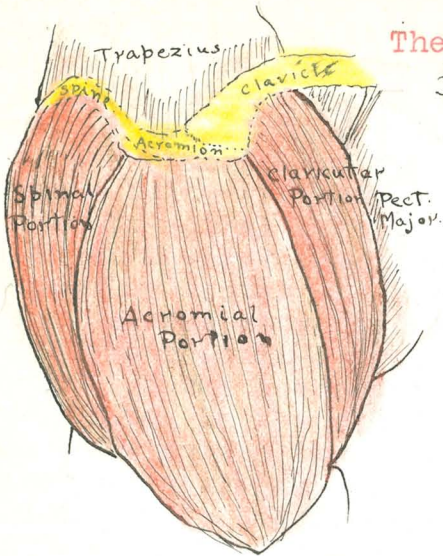 The
Trapezius
Clavicle
Spine
Acromion
Spinal
Portion
Clavicular
Portion
Pect.
Major.
Acromial
Portion